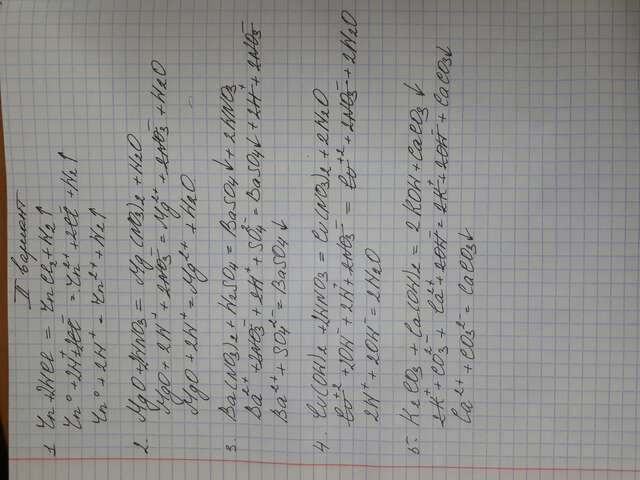 II вариант
1. Zn+2HCl = ZnCl2+H2↑
Zn⁰+2H⁺+2Cl⁻ = Zn²⁺+2Cl⁻+H2↑
Zn⁰+2H⁺ = Zn²⁺+H2↑
2. MgO+2HNO3 = Mg(NO3)2+H2O
MgO+2H⁺+2NO3⁻ = Mg²⁺+2NO3⁻+H2O
MgO+2H⁺ = Mg²⁺+H2O
3. Ba(NO3)2+H2SO4 = BaSO4↓+2HNO3
Ba²⁺+2NO3⁻+2H⁺+SO4²⁻ = BaSO4↓+2H⁺+2NO3⁻
Ba²⁺+SO4²⁻ = BaSO4↓
4. Cu(OH)2+2HNO3 = Cu(NO3)2+2H2O
Cu⁺²+2OH⁻+2H⁺+2NO3⁻ = Cu⁺²+2NO3⁻+2H2O
2H⁺+2OH⁻ = 2H2O
5. K2CO3+Ca(OH)2 = 2KOH+CaCO3↓
2K⁺+CO3²⁻+Ca²⁺+2OH⁻ = 2K⁺+2OH⁻+CaCO3↓
Ca²⁺+CO3²⁻ = CaCO3↓